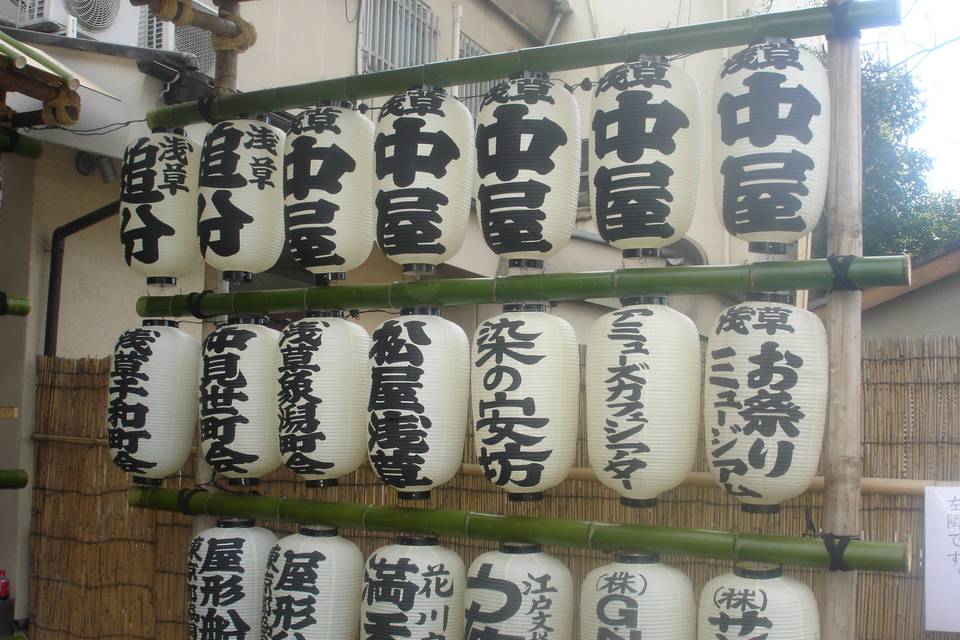 浅草
追分
浅草
追分
浅草
中屋
浅草
中屋
浅草
中屋
浅草
中屋
浅草
中屋
浅草千和町会
中見世町会
浅草象潟町会
松屋浅草
染の安坊
アミューズカフェシアター
浅草
お祭り
ミュージアム
屋形船
屋形
花川
満
江戸文
(株)
GN
(株)
サ
左
隣です。